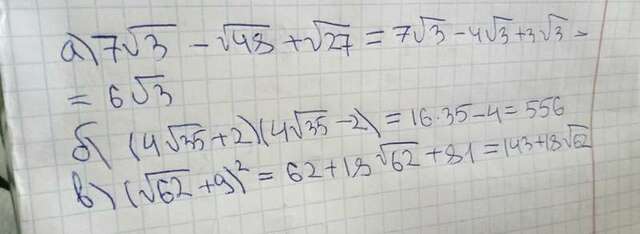 а) 7√3 - √48 + √27 = 7√3 - 4√3 + 3√3 =
= 6√3
б) (4√35 + 2)(4√35 - 2) = 16·35 - 4 = 556
в) (√62 + 9)² = 62 + 18√62 + 81 = 143 + 18√62